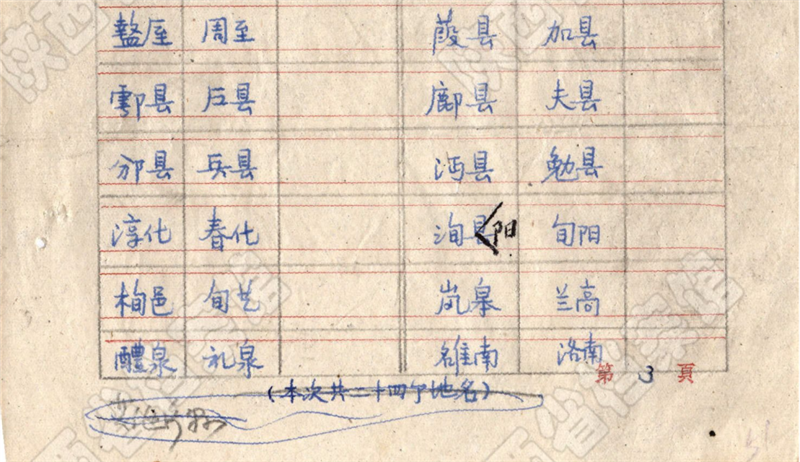 盩厔 周至 葭县 加县
鄠县 戶县 鄜县 夫县
邠县 兵县 沔县 勉县
淳化 春化 洵县阳 旬阳
栒邑 旬艺 岚皋 兰高
醴泉 礼泉 雒南 洛南
第 3 頁
(本次共二十四个地名)
陕西省档案馆